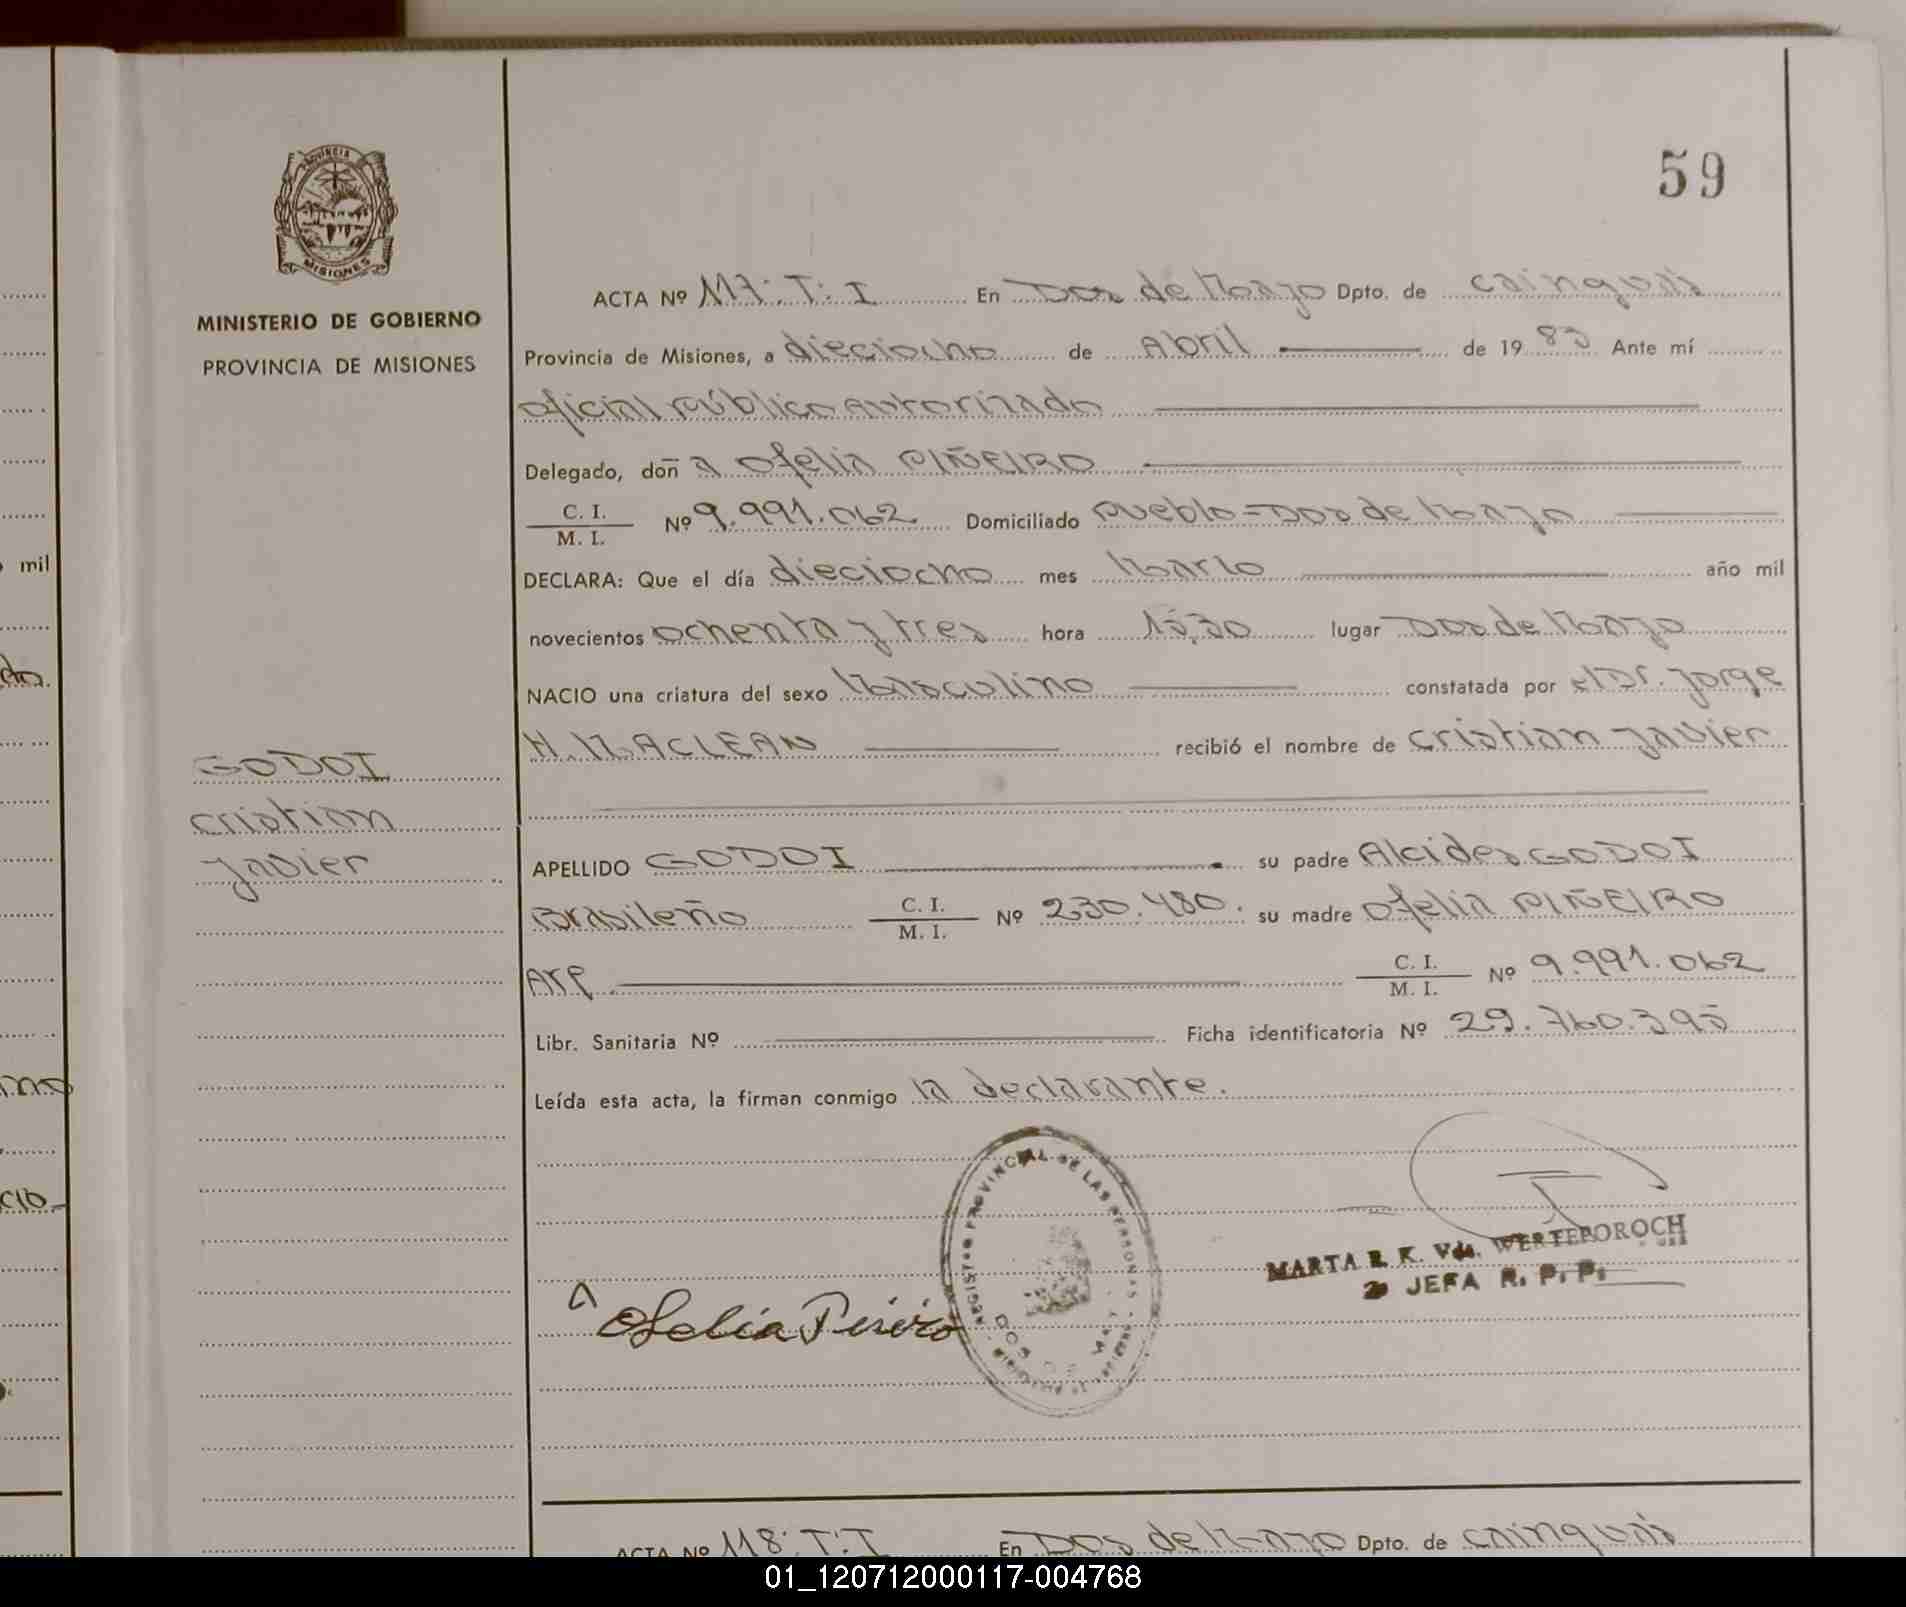 59
PROVINCIA
MISIONES
MINISTERIO DE GOBIERNO
PROVINCIA DE MISIONES
GODOI
Cristian
Javier
ACTA Nº 117: T: I En Dos de Mayo Dpto. de Cainguás
Provincia de Misiones, a dieciocho de Abril de 1983 Ante mí
oficial público autorizado
Delegado, doña Ofelia PIÑEIRO
C. I.
M. I. Nº 9.991.062 Domiciliado Pueblo - Dos de Mayo
DECLARA: Que el día dieciocho mes Marzo año mil
novecientos ochenta y tres hora 15,30 lugar Dos de Mayo
NACIO una criatura del sexo Masculino constatada por el Dr. Jorge
H. MACLEAN recibió el nombre de Cristian Javier
APELLIDO GODOI su padre Alcides GODOI
Brasileño C. I.
M. I. Nº 230.480. su madre Ofelia PIÑEIRO
Arg. C. I.
M. I. Nº 9.991.062
Libr. Sanitaria Nº Ficha identificatoria Nº 29.760.395
Leída esta acta, la firman conmigo la declarante.
REGISTRO PROVINCIAL DE LAS PERSONAS
DOS DE MAYO
MARTA R. K. Vda. WERTEPOROCH
JEFA R. P. P.
Ofelia Piñeiro
ACTA Nº 118: T: I En Dos de Mayo Dpto. de Cainguás
mil
01_120712000117-004768